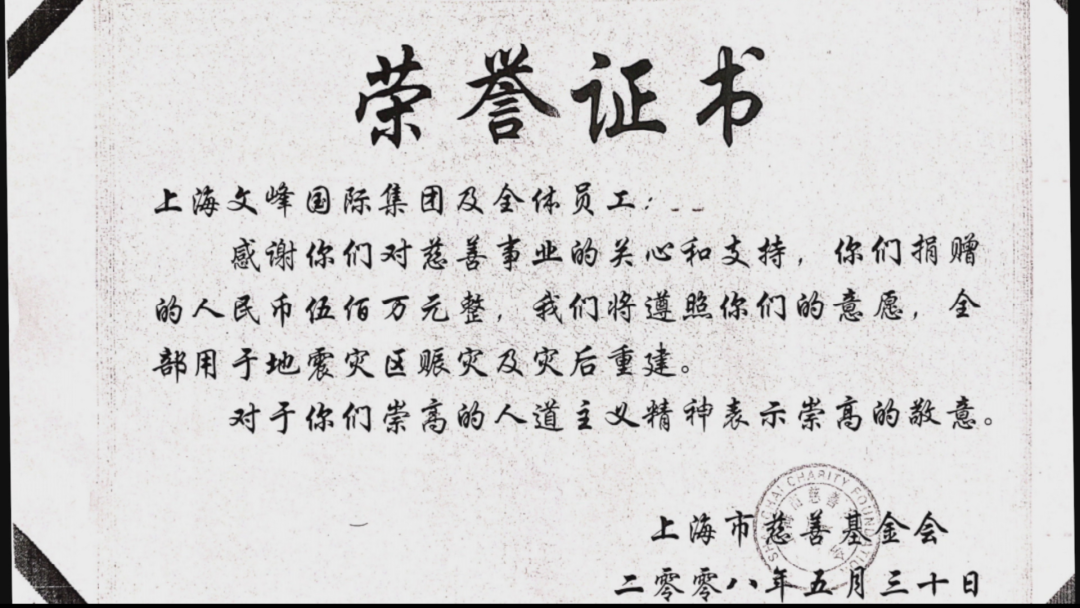 荣誉证书
上海文峰国际集团及全体员工：
感谢你们对慈善事业的关心和支持，你们捐赠
的人民币伍佰万元整，我们将遵照你们的意愿，全
部用于地震灾区赈灾及灾后重建。
对于你们崇高的人道主义精神表示崇高的敬意。
上海市慈善基金会
二零零八年五月三十日